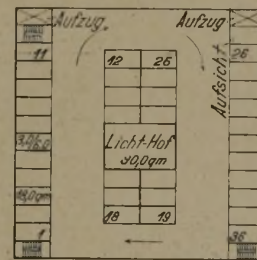 Aufzug. Aufzug
11 12 26 26
Aufsicht
Licht-Hof
90,0qm
18,0qm
18 19
1 36